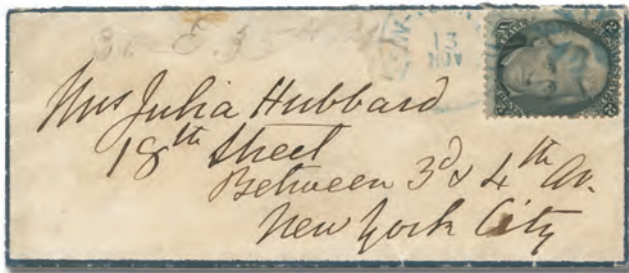 13
NOV
Mrs Julia Hubbard
18th Street
Between 3d & 4th Av.
New York City